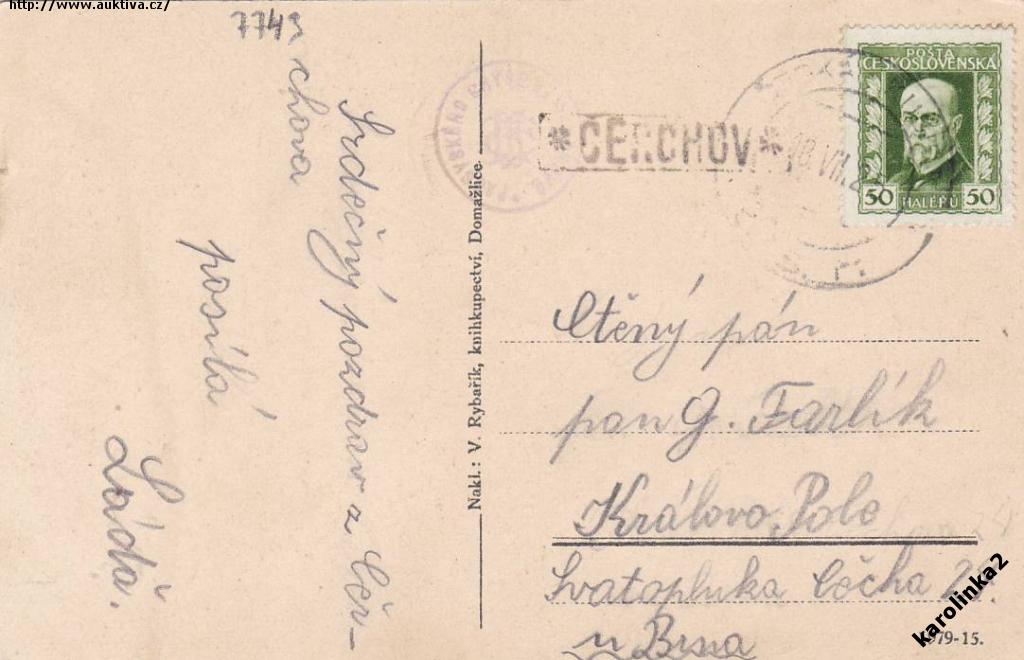 http://www.auktiva.cz/
7743
Srdečný pozdrav z Čer-
chova
posílá
Láďa.
Nakl.: V. Rybařík, knihkupectví, Domažlice.
*ČERCHOV*
POŠTA
ČESKOSLOVENSKÁ
50 HALÉŘŮ 50
Ctěný pán
pan G. Farlík
Královo Pole
Svatopluka Čecha
u Brna
979-15.
karolinka2